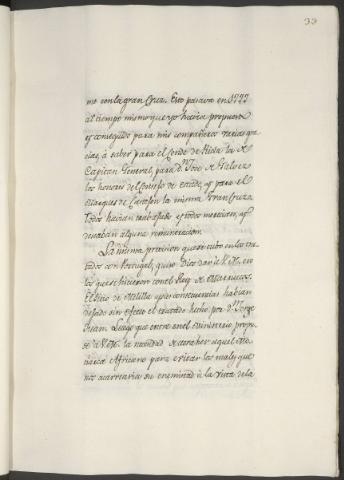 33
mo con la gran Cruz. Esto pasava en 1777
al tiempo mismo que yo havia propuesto
y conseguido para mis compañeros varias gra
cias, á saber para el Conde de Ricla la de
Capitan General, para Dn. Josef de Galvez
los honores del Consejo de Estado, y para el
Marques de Castejon la misma Gran Cruz.
Todos havian trabajado y todos merecian, y
deseaban alguna remuneracion.
La misma precision que se tubo en los tra
tados con Portugal, quiso Dios darle á V.M. en
los que se hicieron con el Rey de Marruecos.
El sitio de Melilla y sus consecuencias habian
dejado sin efecto el tratado hecho por Dn. Jorge
Juan. Luego que entré en el Ministerio propu
se á V.M. la necesidad de atraher á aquel Mo
narca Africano para evitar los males que
nos acarrearia su enemistad á la vista de la